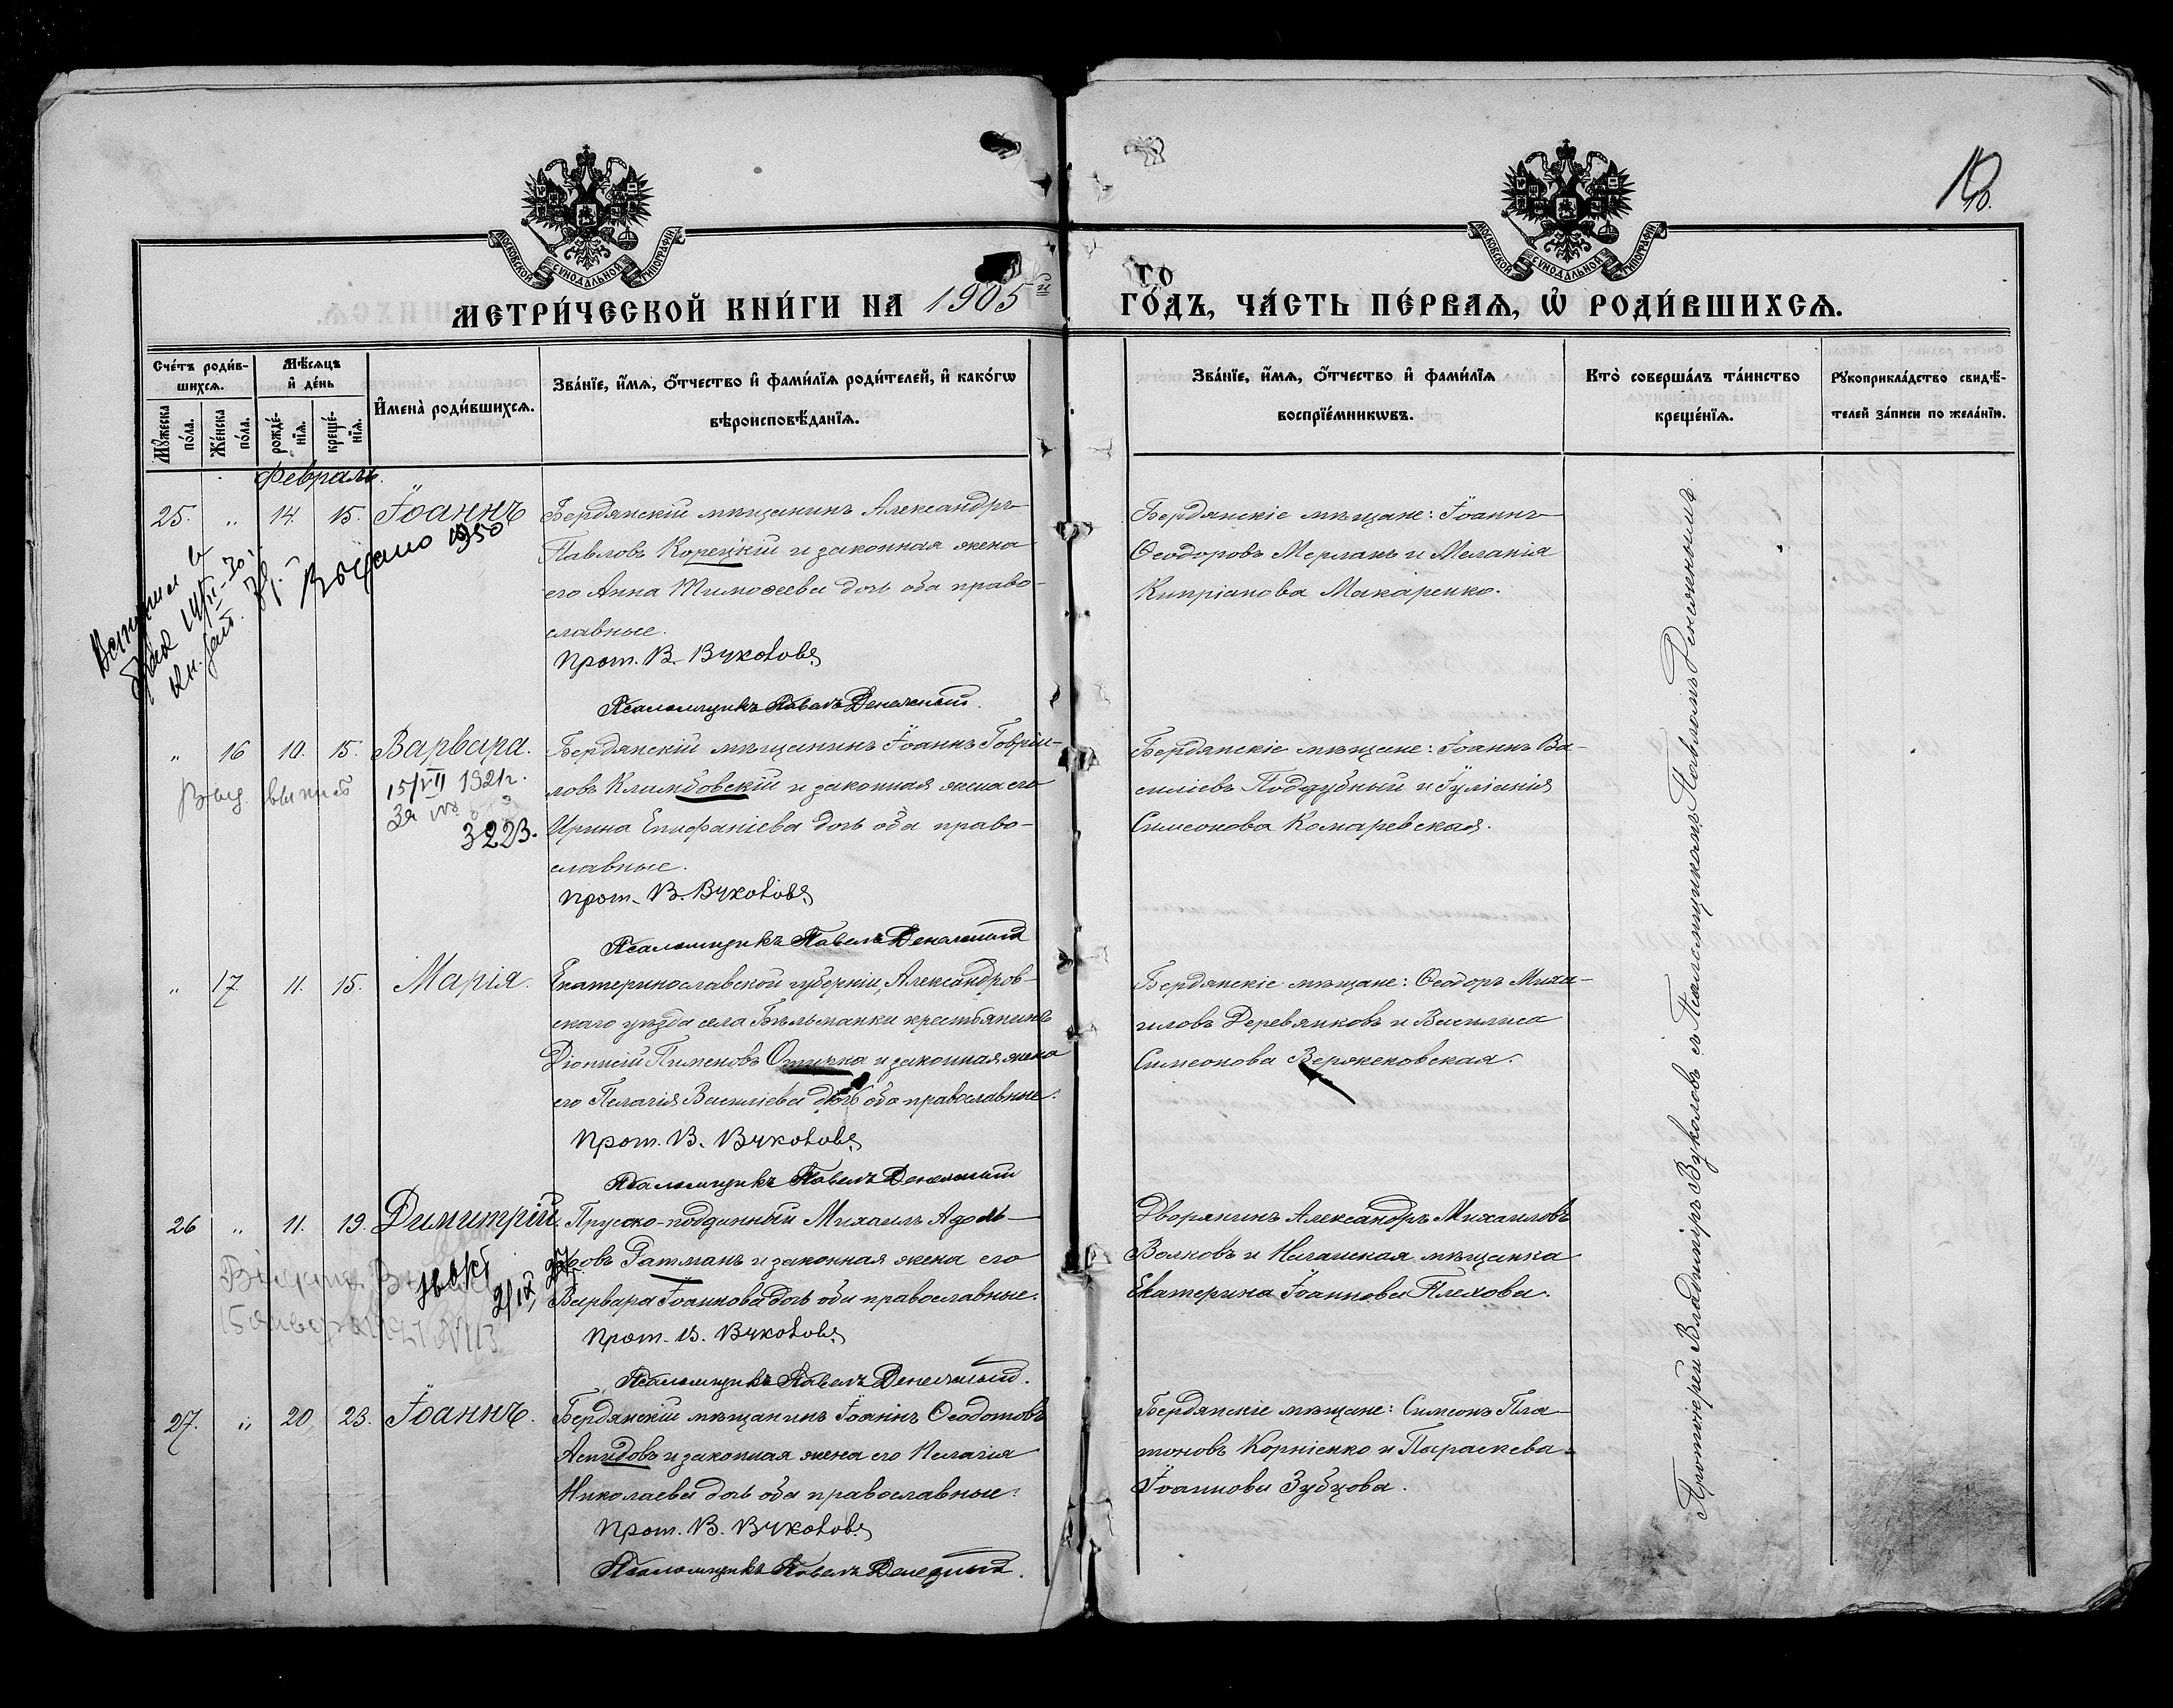 10
10.
МОСКОВСКОЙ СУНОДАЛЬНОЙ ТИПОГРАФІИ
МОСКОВСКОЙ СУНОДАЛЬНОЙ ТИПОГРАФІИ
МЕТРИ́ЧЕСКОЙ КНИ́ГИ НА 1905
го
ГО́ДЪ, ЧА́СТЬ ПЕ́РВАѦ, Ѡ҆ РОДИ́ВШИХСѦ.
Сче́тъ роди́в-
шихсѧ.
Мꙋ́жеска по́ла.
Же́нска по́ла.
Мѣ́сѧцъ
и҆ де́нь
рожде́-
нїѧ.
креще́-
нїѧ.
И҆мена̀ роди́вшихсѧ.
Зва́нїе, и҆́мѧ, ѻ҆́тчество и҆ фами́лїѧ роди́телей, и҆ како́гѡ
вѣроисповѣ́данїѧ.
Зва́нїе, и҆́мѧ, ѻ҆́тчество и҆ фами́лїѧ
воспрїе́мникѡвъ.
Кто̀ соверша́лъ та́инство
креще́нїѧ.
Рꙋкоприкла́дство свидѣ́-
телей за́писи по жела́нїю.
Февраль.
25. " 14. 15. Іоаннъ
Вступил в
брак 14/II-30
Выдано 1950
Бердянскій мѣщанинъ Александръ
Павловъ Корецкій и законная жена
его Анна Тимоѳеева дочь оба право-
славные.
Прот. В. Вуколовъ
Псаломщикъ Павелъ Денежный.
Бердянскіе мѣщане: Іоаннъ
Ѳеодоровъ Мерланъ и Меланія
Кипріанова Макаренко.
" 16 10. 15. Варвара.
Выд. выпись
15/VII 1921г.
За №
3223.
Бердянскій мѣщанинъ Іоаннъ Гавріи-
ловъ Климбовскій и законная жена его
Ирина Епифаніева дочь оба право-
славные.
Прот. В. Вуколовъ
Псаломщикъ Павелъ Денежный
Бердянскіе мѣщане: Іоаннъ Ва-
силіевъ Поддубный и Іуліанія
Симеонова Комаревская.
" 17 11. 15. Марія.
Екатеринославской губерніи, Александров-
скаго уѣзда села Бѣльманки крестьянинъ
Діонисій Пименовъ Отичка и законная жена
его Пелагія Василіева дочь оба православные.
Прот. В. Вуколовъ
Псаломщикъ Павелъ Денежный
Бердянскіе мѣщане: Ѳеодоръ Миха-
иловъ Деревянковъ и Василиса
Симеонова Верженовская.
26 " 11. 19. Димитрій
15 января 1921
Прусско-подданный Михаилъ Адоль-
фовъ Гатманъ и законная жена его
Варвара Іоаннова дочь оба православные.
Прот. В. Вуколовъ
Псаломщикъ Павелъ Денежный.
Дворянинъ Александръ Михаиловъ
Волковъ и Ногайская мѣщанка
Екатерина Іоаннова Плехова.
27. " 20 23. Іоаннъ.
Бердянскій мѣщанинъ Іоаннъ Ѳеодотовъ
Аспидовъ и законная жена его Пелагія
Николаева дочь оба православные.
Прот. В. Вуколовъ
Псаломщикъ Павелъ Денежный.
Бердянскіе мѣщане: Симеонъ Пла-
тоновъ Корніенко и Параскева
Іоаннова Зубцова.
Протоіерей Владиміръ Вуколовъ съ Псаломщикомъ Павломъ Денежнымъ.